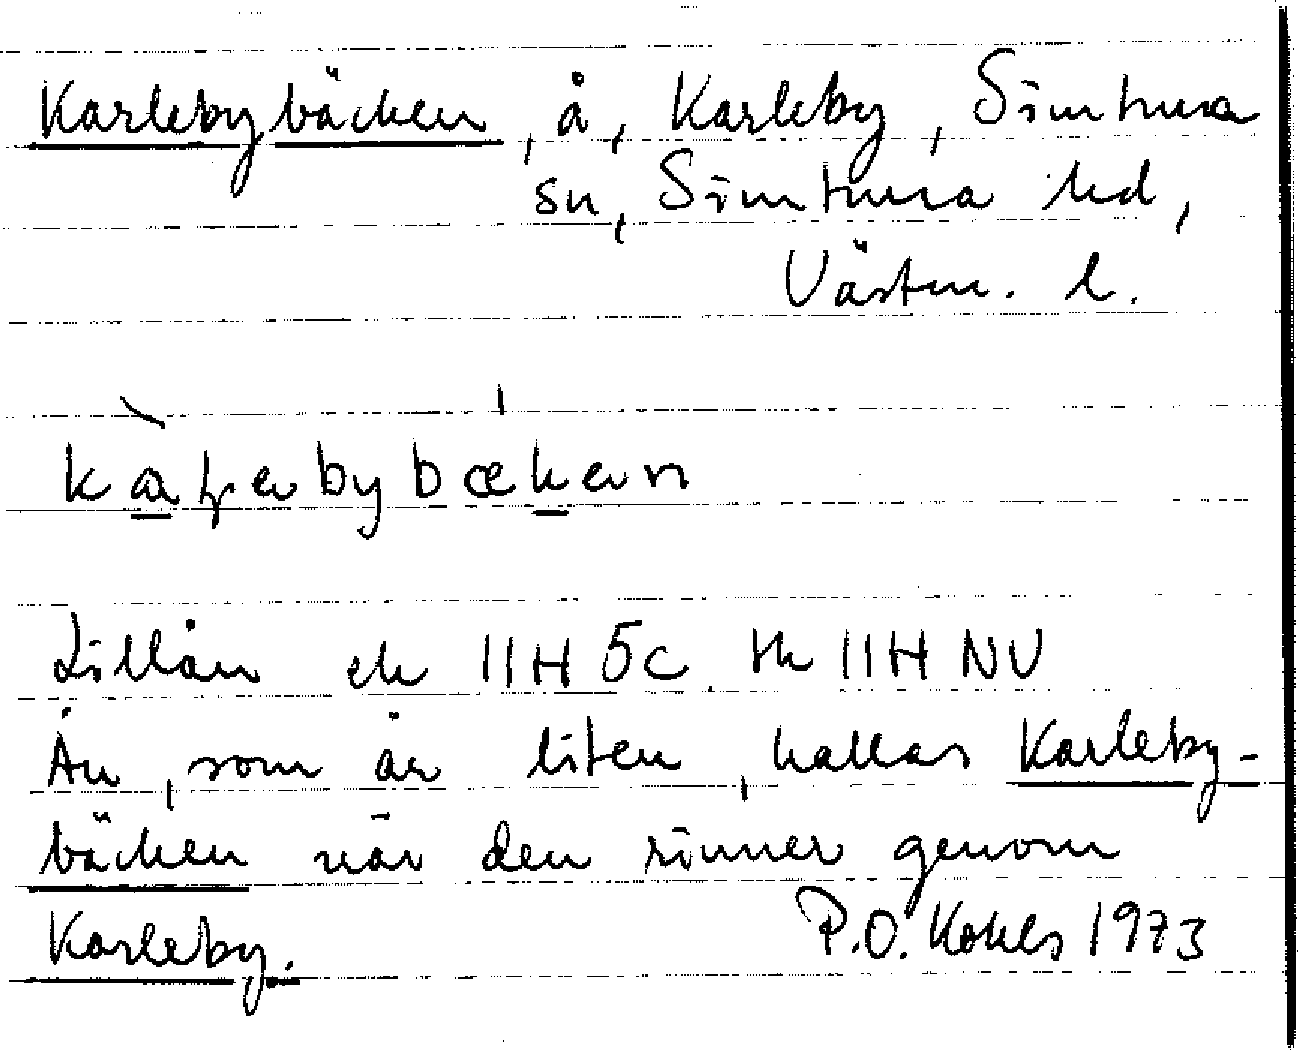 Karlebybäcken, å, Karleby, Simtuna
sn, Simtuna hd,
Västm. l.
Lillån ek 11H 5c, tk 11H NV
Ån, som är liten, kallas Karleby-
bäcken när den rinner genom
Karleby. P.O. Kohls 1973